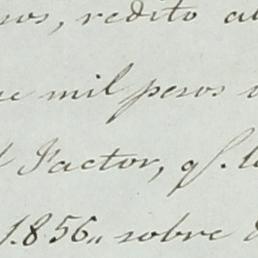 redito al
mil pesos
Factor, qͤ. l
1.856,, sobre